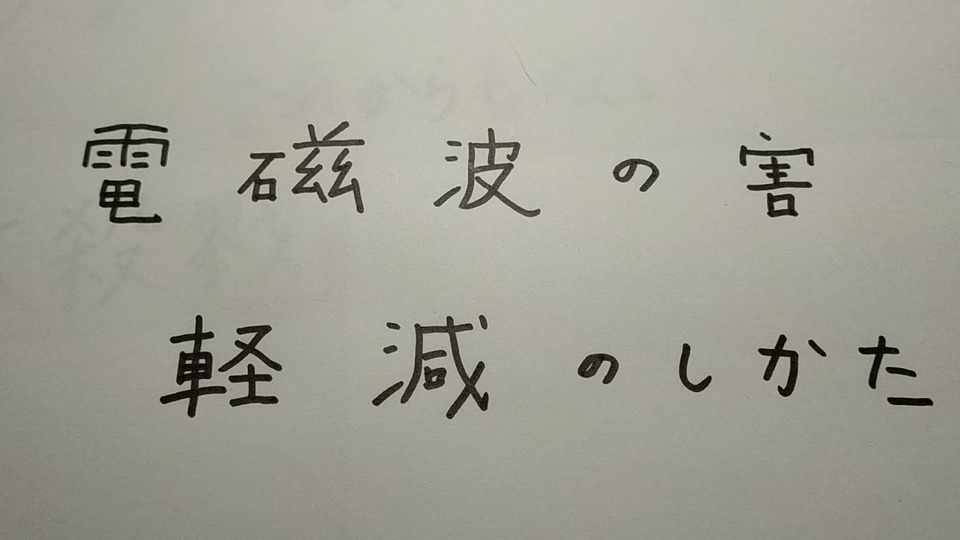 電磁波の害
軽減のしかた